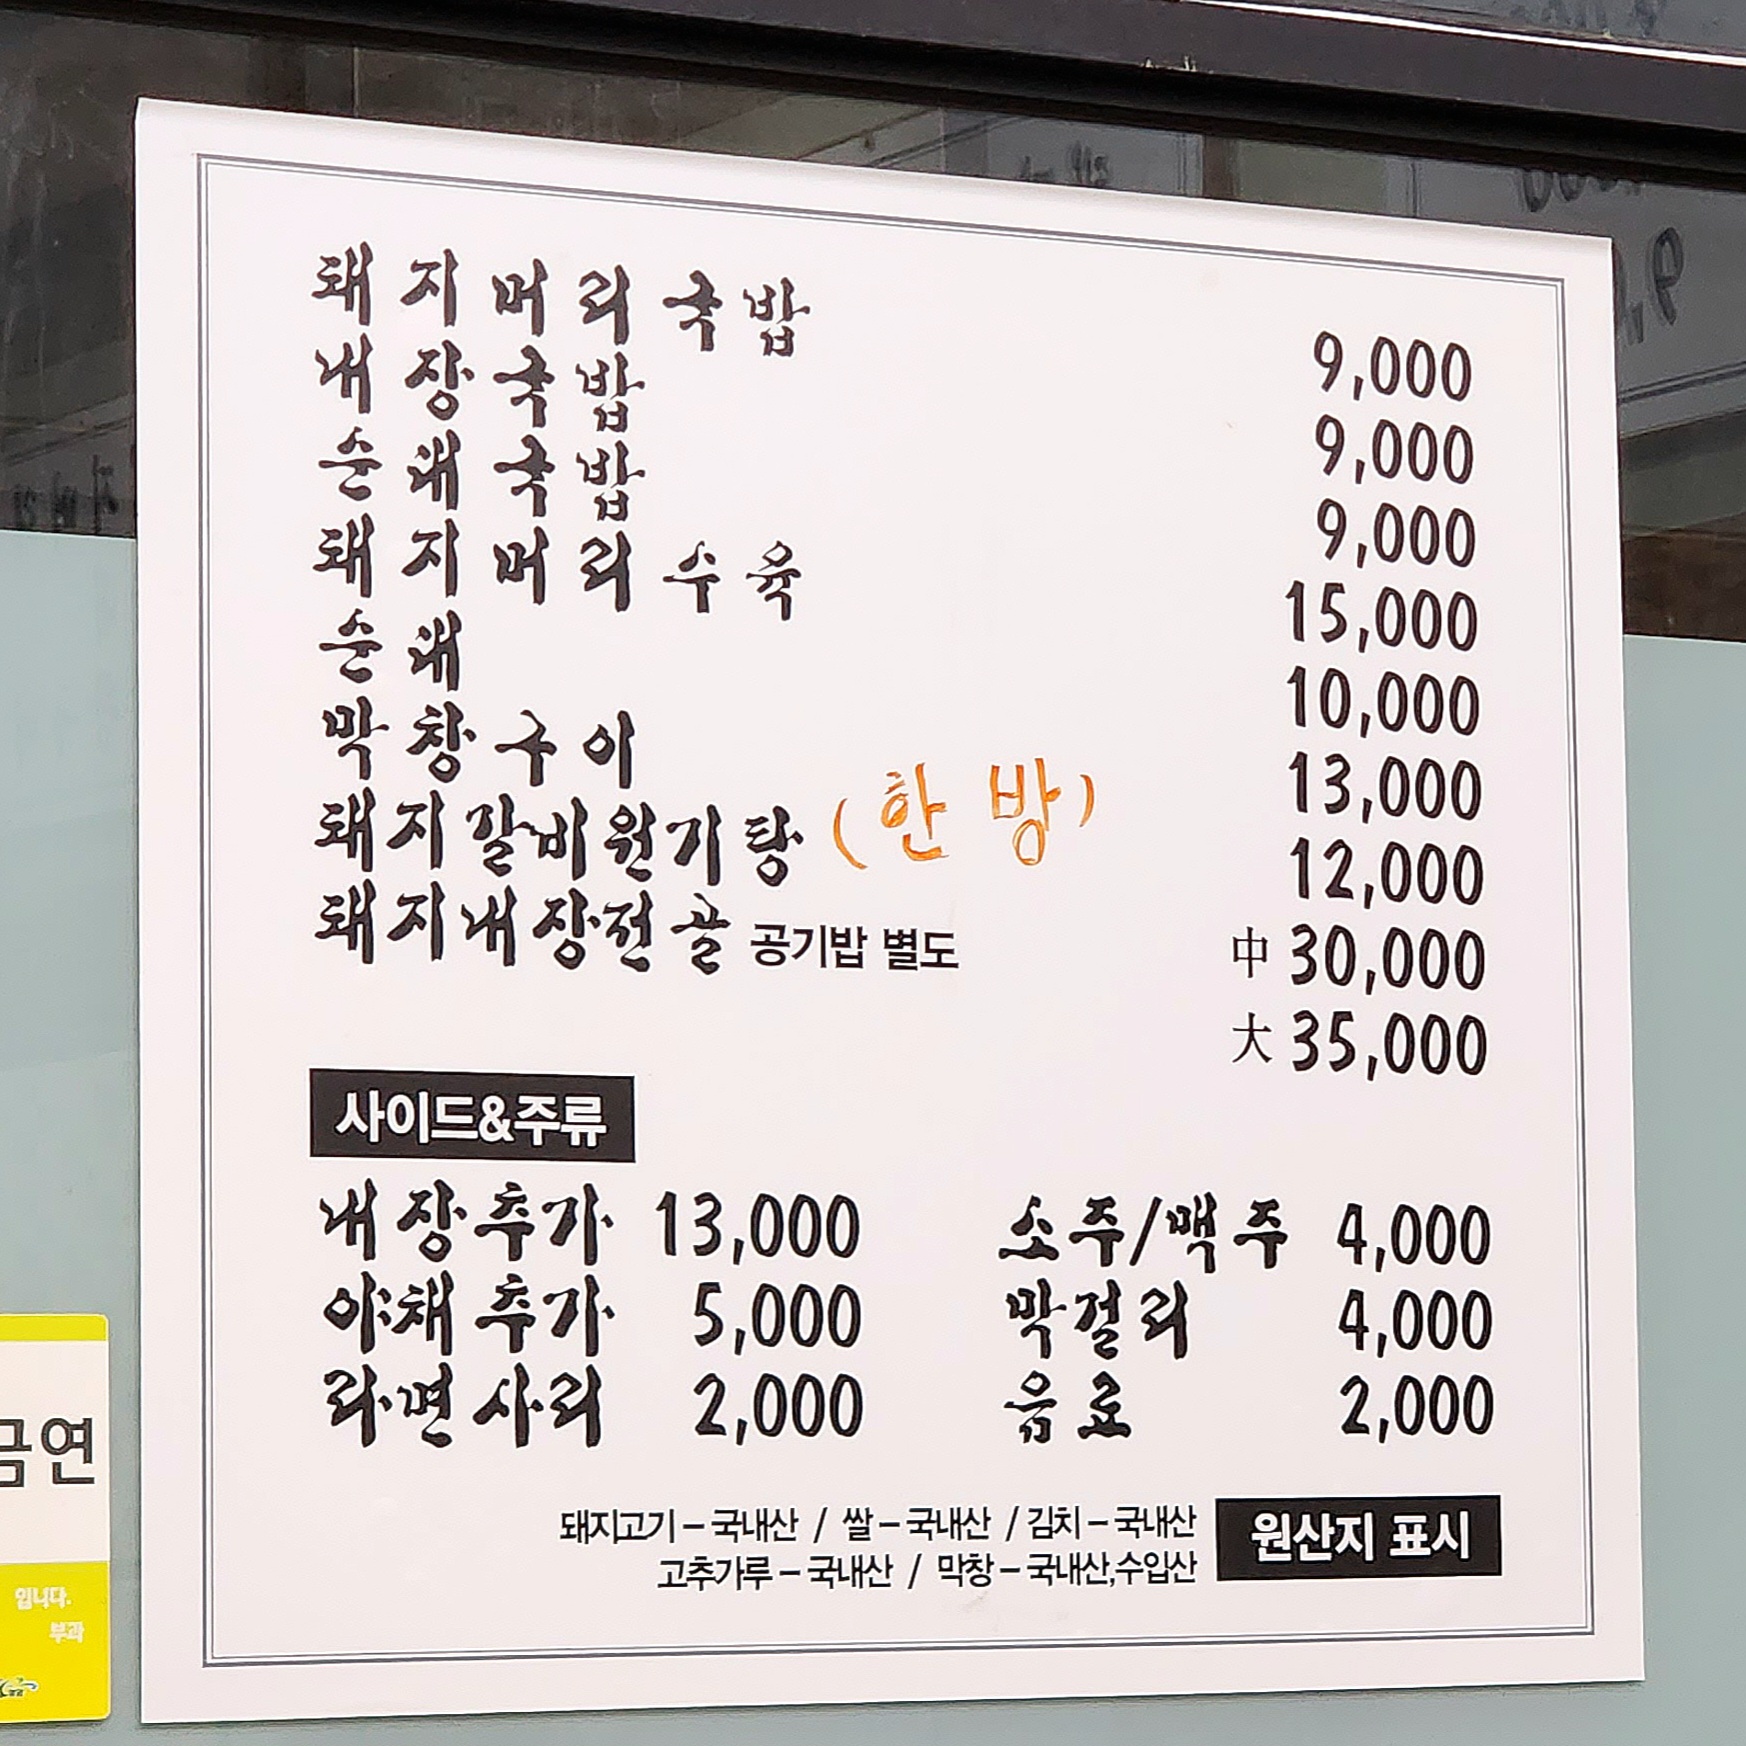 돼지머리국밥 9,000
내장국밥 9,000
순대국밥 9,000
돼지머리수육 15,000
순대 10,000
막창구이 13,000
돼지갈비원기탕 (한방) 12,000
돼지내장전골 공기밥 별도 中 30,000
大 35,000
사이드&주류
내장추가 13,000 소주/맥주 4,000
야채추가 5,000 막걸리 4,000
라면사리 2,000 음료 2,000
돼지고기-국내산 / 쌀-국내산 / 김치-국내산 원산지 표시
고추가루-국내산 / 막창-국내산,수입산
금연
입니다.
부과